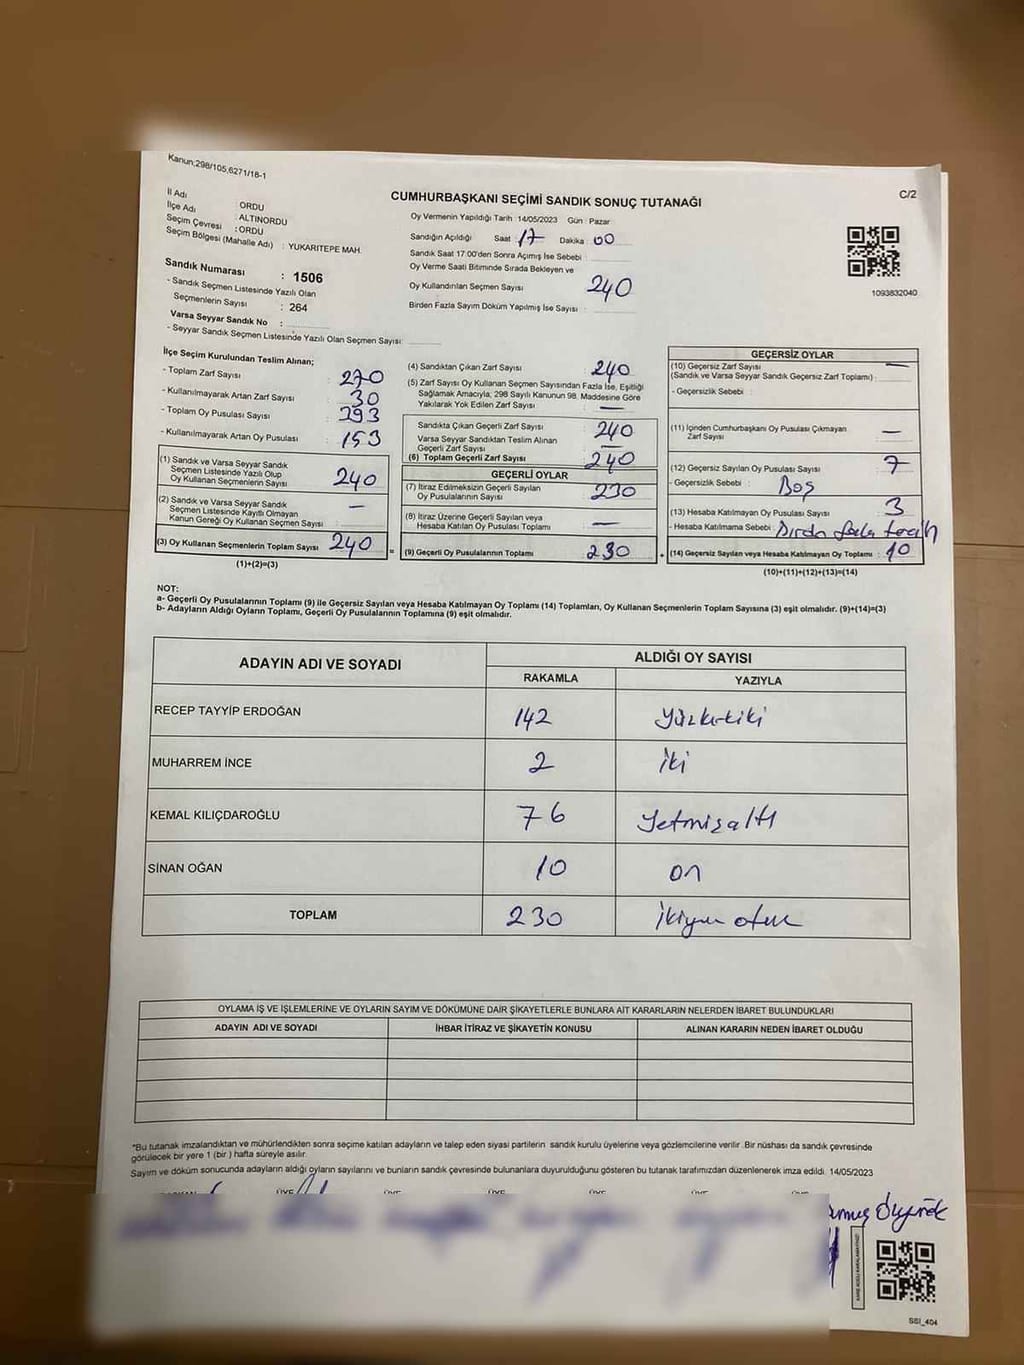 Kanun;298/105,6271/18-1
C/2
CUMHURBAŞKANI SEÇİMİ SANDIK SONUÇ TUTANAĞI
İl Adı : ORDU
İlçe Adı : ALTINORDU
Seçim Çevresi : ORDU
Seçim Bölgesi (Mahalle Adı) : YUKARITEPE MAH.
Sandık Numarası : 1506
- Sandık Seçmen Listesinde Yazılı Olan
Seçmenlerin Sayısı : 264
Varsa Seyyar Sandık No :
- Seyyar Sandık Seçmen Listesinde Yazılı Olan Seçmen Sayısı:
Oy Vermenin Yapıldığı Tarih : 14/05/2023 Gün : Pazar
Sandığın Açıldığı Saat 17 Dakika : 00
Sandık Saat 17.00'den Sonra Açımış İse Sebebi :
Oy Verme Saati Bitiminde Sırada Bekleyen ve
Oy Kullandırılan Seçmen Sayısı : 240
Birden Fazla Sayım Döküm Yapılmış İse Sayısı :
1093832040
İlçe Seçim Kurulundan Teslim Alınan;
- Toplam Zarf Sayısı : 270
- Kullanılmayarak Artan Zarf Sayısı : 30
- Toplam Oy Pusulası Sayısı : 393
- Kullanılmayarak Artan Oy Pusulası : 153
(1) Sandık ve Varsa Seyyar Sandık
Seçmen Listesinde Yazılı Olup
Oy Kullanan Seçmenlerin Sayısı : 240
(2) Sandık ve Varsa Seyyar Sandık
Seçmen Listesinde Kayıtlı Olmayan
Kanun Gereği Oy Kullanan Seçmen Sayısı : —
(3) Oy Kullanan Seçmenlerin Toplam Sayısı : 240
(1)+(2)=(3)
(4) Sandıktan Çıkan Zarf Sayısı : 240
(5) Zarf Sayısı Oy Kullanan Seçmen Sayısından Fazla İse, Eşitliği
Sağlamak Amacıyla; 298 Sayılı Kanunun 98. Maddesine Göre
Yakılarak Yok Edilen Zarf Sayısı : —
Sandıkta Çıkan Geçerli Zarf Sayısı : 240
Varsa Seyyar Sandıktan Teslim Alınan
Geçerli Zarf Sayısı : —
(6) Toplam Geçerli Zarf Sayısı : 240
GEÇERLİ OYLAR
(7) İtiraz Edilmeksizin Geçerli Sayılan
Oy Pusulalarının Sayısı : 230
(8) İtiraz Üzerine Geçerli Sayılan veya
Hesaba Katılan Oy Pusulası Toplamı : —
(9) Geçerli Oy Pusulalarının Toplamı : 230
GEÇERSİZ OYLAR
(10) Geçersiz Zarf Sayısı —
(Sandık ve Varsa Seyyar Sandık Geçersiz Zarf Toplamı) :
- Geçersizlik Sebebi :
(11) İçinden Cumhurbaşkanı Oy Pusulası Çıkmayan
Zarf Sayısı : —
(12) Geçersiz Sayılan Oy Pusulası Sayısı : 7
- Geçersizlik Sebebi : Boş
(13) Hesaba Katılmayan Oy Pusulası Sayısı : 3
- Hesaba Katılmama Sebebi :
(14) Geçersiz Sayılan veya Hesaba Katılmayan Oy Toplamı : 10
(10)+(11)+(12)+(13)=(14)
NOT:
a- Geçerli Oy Pusulalarının Toplamı (9) ile Geçersiz Sayılan veya Hesaba Katılmayan Oy Toplamı (14) Toplamları, Oy Kullanan Seçmenlerin Toplam Sayısına (3) eşit olmalıdır. (9)+(14)=(3)
b- Adayların Aldığı Oyların Toplamı, Geçerli Oy Pusulalarının Toplamına (9) eşit olmalıdır.
ADAYIN ADI VE SOYADI ALDIĞI OY SAYISI
RAKAMLA YAZIYLA
RECEP TAYYİP ERDOĞAN 142 Yüzkırkiki
MUHARREM İNCE 2 iki
KEMAL KILIÇDAROĞLU 76 Yetmişaltı
SİNAN OĞAN 10 on
TOPLAM 230 İkiyüz otuz
OYLAMA İŞ VE İŞLEMLERİNE VE OYLARIN SAYIM VE DÖKÜMÜNE DAİR ŞİKAYETLERLE BUNLARA AİT KARARLARIN NELERDEN İBARET BULUNDUKLARI
ADAYIN ADI VE SOYADI İHBAR İTİRAZ VE ŞİKAYETİN KONUSU ALINAN KARARIN NEDEN İBARET OLDUĞU
*Bu tutanak imzalandıktan ve mühürlendikten sonra seçime katılan adayların ve talep eden siyasi partilerin sandık kurulu üyelerine veya gözlemcilerine verilir .Bir nüshası da sandık çevresinde
görülecek bir yere 1 (bir ) hafta süreyle asılır.
Sayım ve döküm sonucunda adayların aldığı oyların sayılarını ve bunların sandık çevresinde bulunanlara duyurulduğunu gösteren bu tutanak tarafımızdan düzenlenerek imza edildi. 14/05/2023
SSI_404